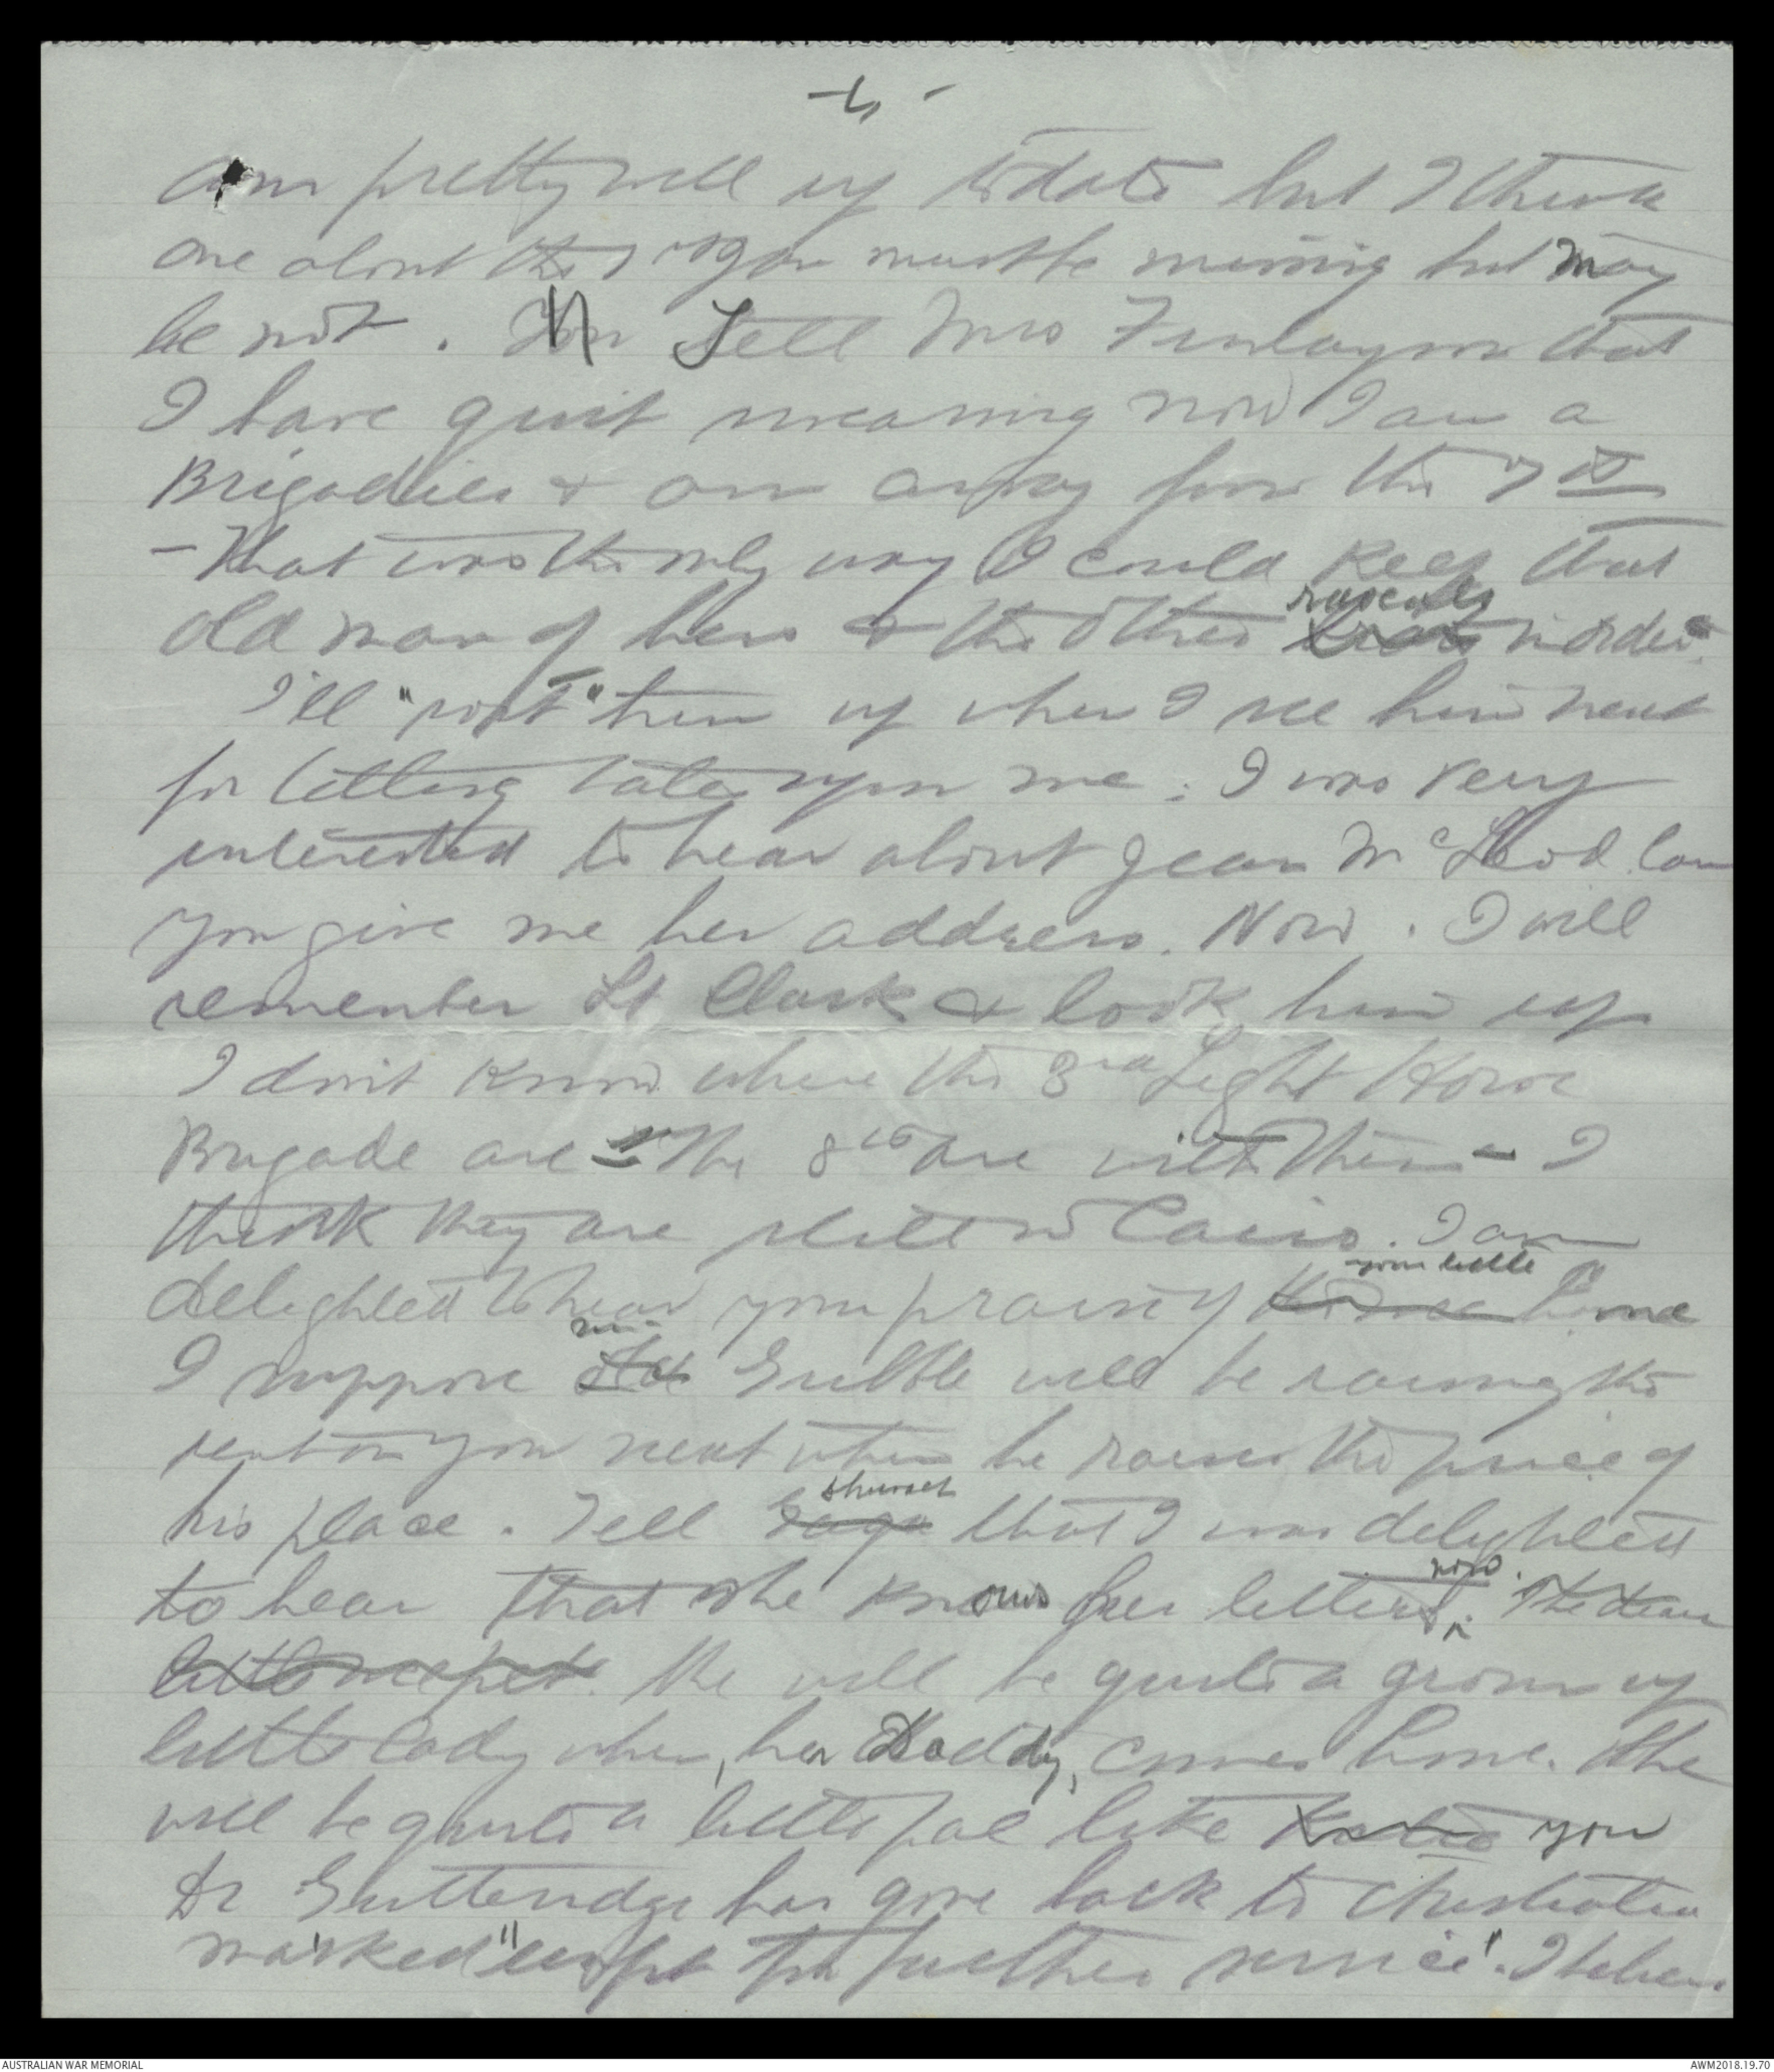 - 4 -
am pretty well up to date but I think
one about the 1st Jan must be missing but may
be not. Tell Mrs Finlayson that
I have quit swearing now I am a
Brigadier & am away from the 7th
- That was the only way I could keep that
old man of hers & the other rascals in order.
I'll "roast" him up when I see him next
for letting tales upon me. I was very
interested to hear about Jean McLeod. Can
you give me her address. Now. I will
remember Lt Clark & look him up
I don't know where the 3rd Light Horse
Brigade are - The 8th are with them - I
think they are still in Cairo. I am
delighted to hear your praise of your little home
I suppose Mr Gribble will be raising the
rent on you next when he raises the price of
his place. Tell that I was delighted
to hear that she knows her letters now. The dear
little pet. She will be quite a grown up
little lady when, her Daddy, comes home. She
will be quite a little pal like you
Dr Gutteridge has gone back to Australia
marked "unfit for further service". I believe